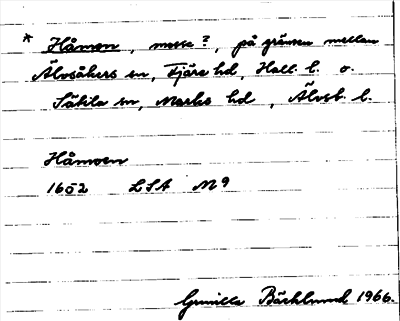 * Håmon, mosse?, på gränsen mellan
Älvsåkers sn, Fjäre hd, Hall. l. o.
Sätila sn, Marks hd, Älvsb. l.
Håmoen
1652 LSA N9
Gunilla Bäcklund 1966.